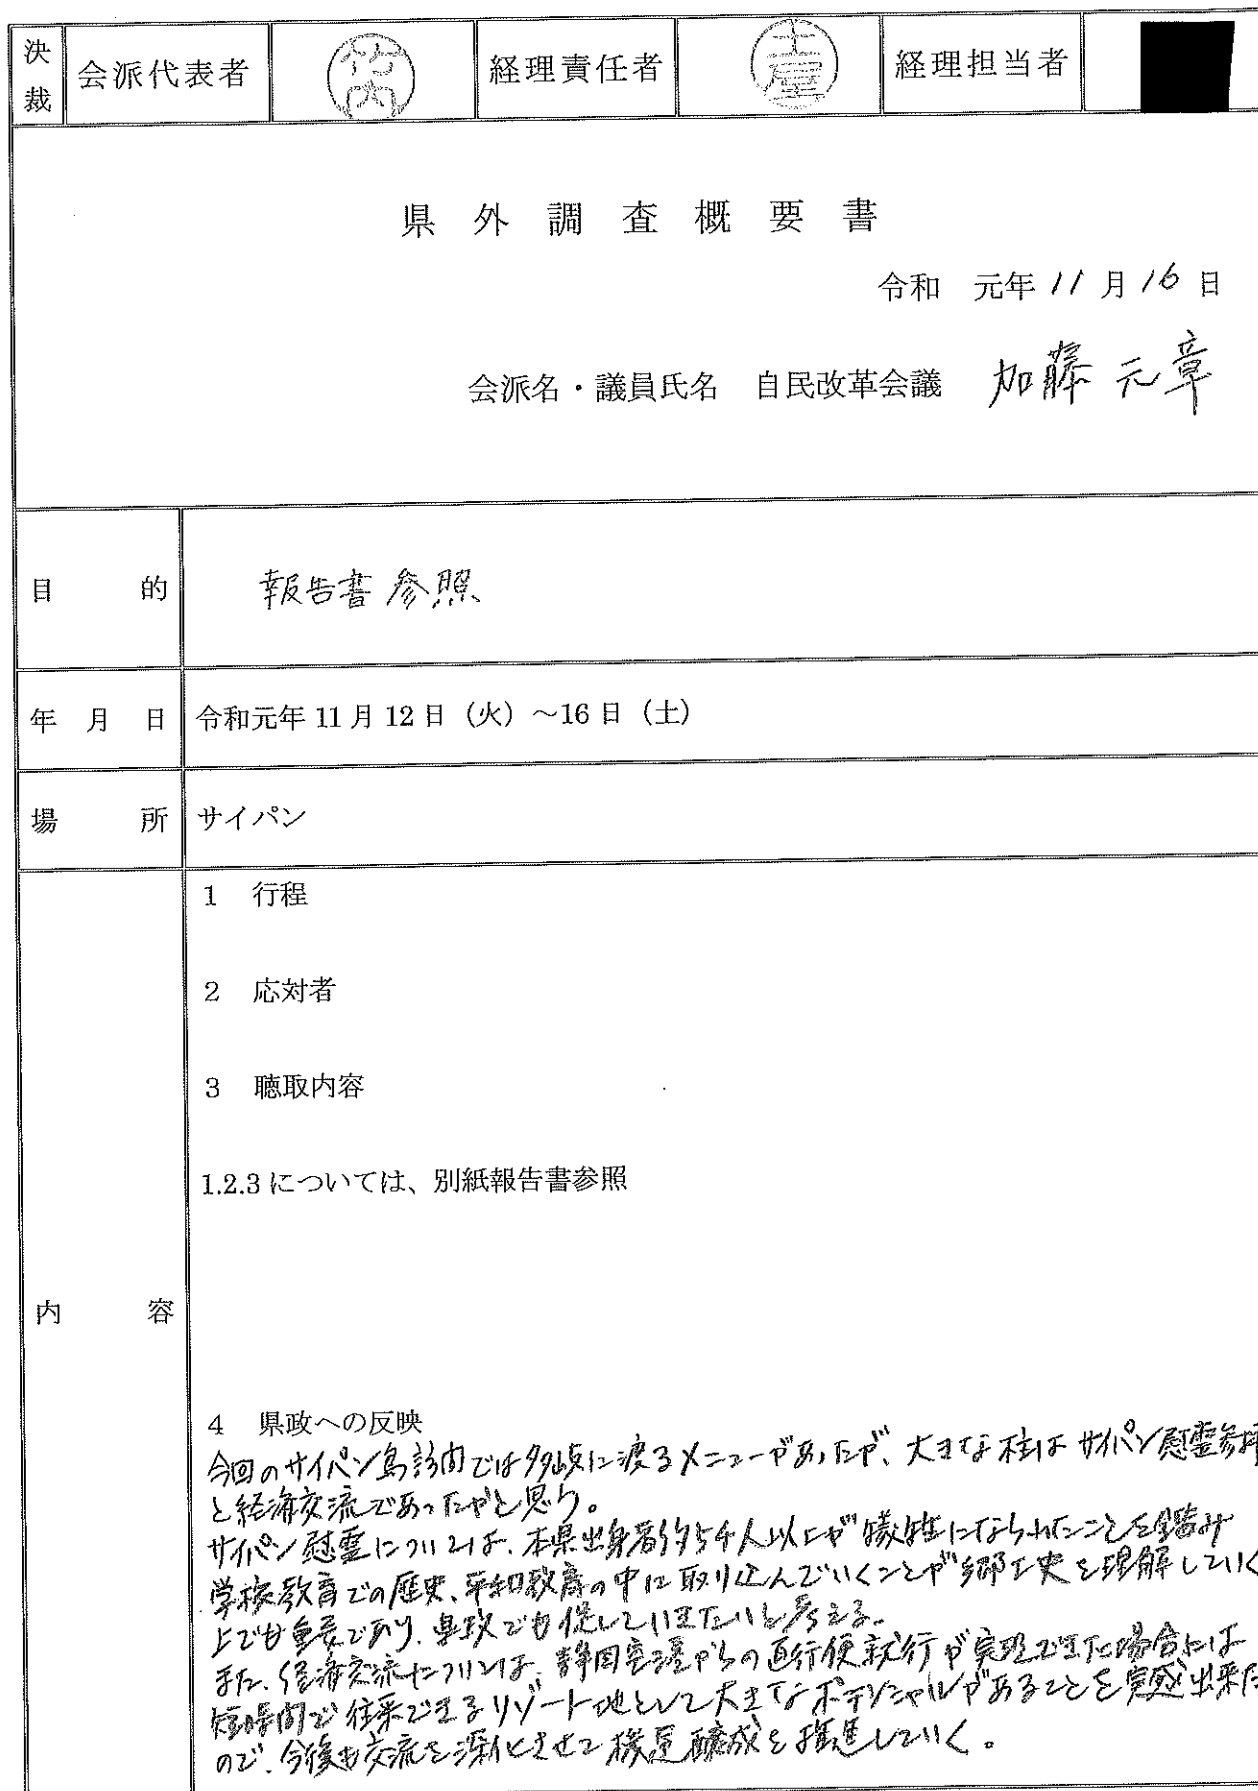 決裁 会派代表者 竹内 経理責任者 土屋 経理担当者
県外調査概要書
令和 元年 11 月 16 日
会派名・議員氏名 自民改革会議 加藤 元章
目的 報告書参照
年月日 令和元年 11 月 12 日（火）～16 日（土）
場所 サイパン
内容
1 行程
2 応対者
3 聴取内容
1.2.3 については、別紙報告書参照
4 県政への反映
今回のサイパン島訪問では多岐に渡るメニューがあったが、大きな柱はサイパン慰霊参拝
と経済交流であったかと思う。
サイパン慰霊については、本県出身者約54人以上が犠牲になられたことを鑑み
学校教育での歴史、平和教育の中に取り込んでいくことが郷土史を理解していく
上でも重要であり、県政でも促していきたいと考える。
また、経済交流については、静岡空港からの直行便就行が実現できた場合には
短時間で往来できるリゾート地として大きなポテンシャルがあることを実感出来た
ので、今後も交流を深化させて機運醸成を推進していく。